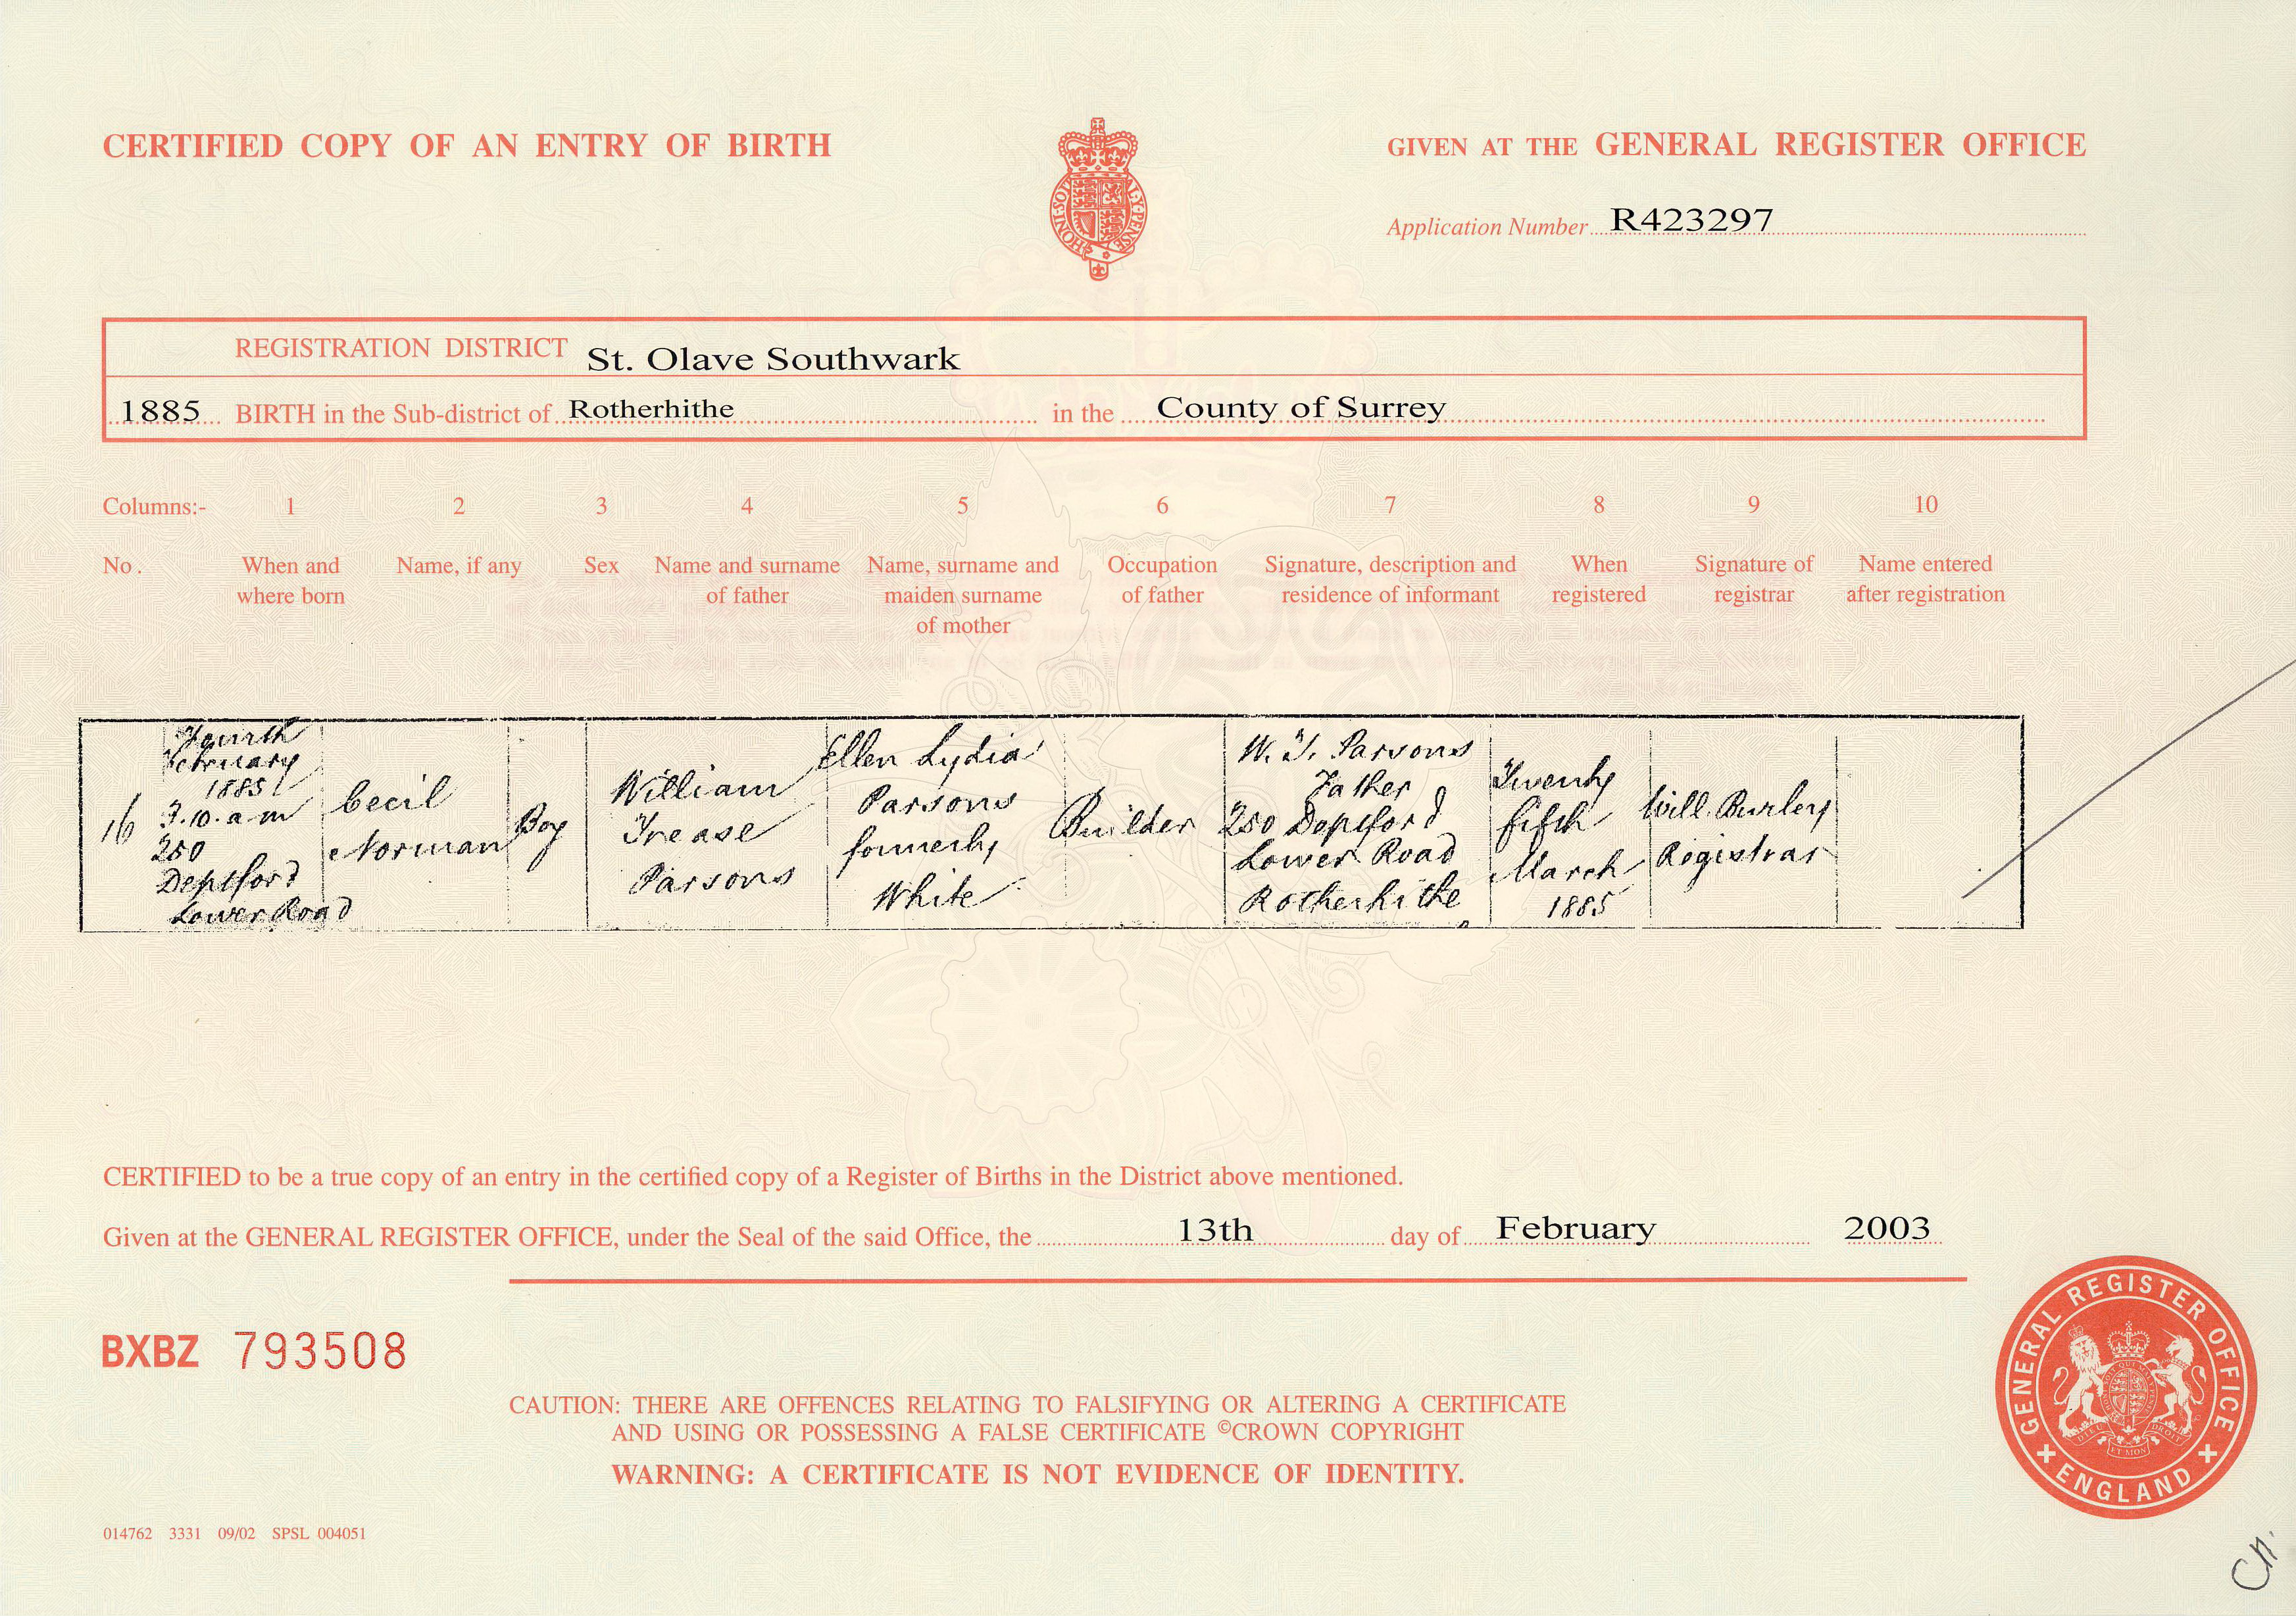 CERTIFIED COPY OF AN ENTRY OF BIRTH
GIVEN AT THE GENERAL REGISTER OFFICE
HONI·SOIT AL·Y·PENSE
Application Number R423297
REGISTRATION DISTRICT St. Olave Southwark
1885 BIRTH in the Sub-district of Rotherhithe in the County of Surrey
Columns:- 1 2 3 4 5 6 7 8 9 10
No. When and where born
Name, if any
Sex
Name and surname of father
Name, surname and maiden surname of mother
Occupation of father
Signature, description and residence of informant
When registered
Signature of registrar
Name entered after registration
16
Fourth
February
1885
3.10. a m
250
Deptford
Lower Road
Cecil
Norman
Boy
William
Trease
Parsons
Ellen Lydia
Parsons
formerly
White
Builder
W. T. Parsons
Father
250 Deptford
Lower Road
Rotherhithe
Twenty
fifth
March
1885
Will. Burley
Registrar
CERTIFIED to be a true copy of an entry in the certified copy of a Register of Births in the District above mentioned.
Given at the GENERAL REGISTER OFFICE, under the Seal of the said Office, the 13th day of February 2003
BXBZ 793508
CAUTION: THERE ARE OFFENCES RELATING TO FALSIFYING OR ALTERING A CERTIFICATE
AND USING OR POSSESSING A FALSE CERTIFICATE ©CROWN COPYRIGHT
WARNING: A CERTIFICATE IS NOT EVIDENCE OF IDENTITY.
GENERAL REGISTER OFFICE
ENGLAND
014762 3331 09/02 SPSL 004051